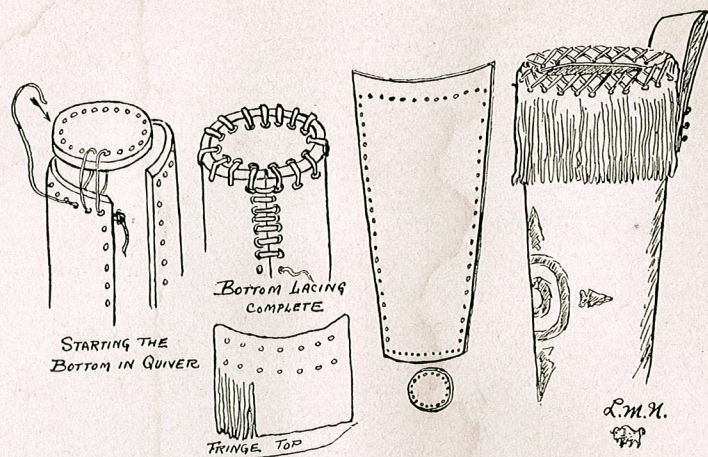 STARTING THE
BOTTOM IN QUIVER
BOTTOM LACING
COMPLETE
FRINGE TOP
L.M.N.